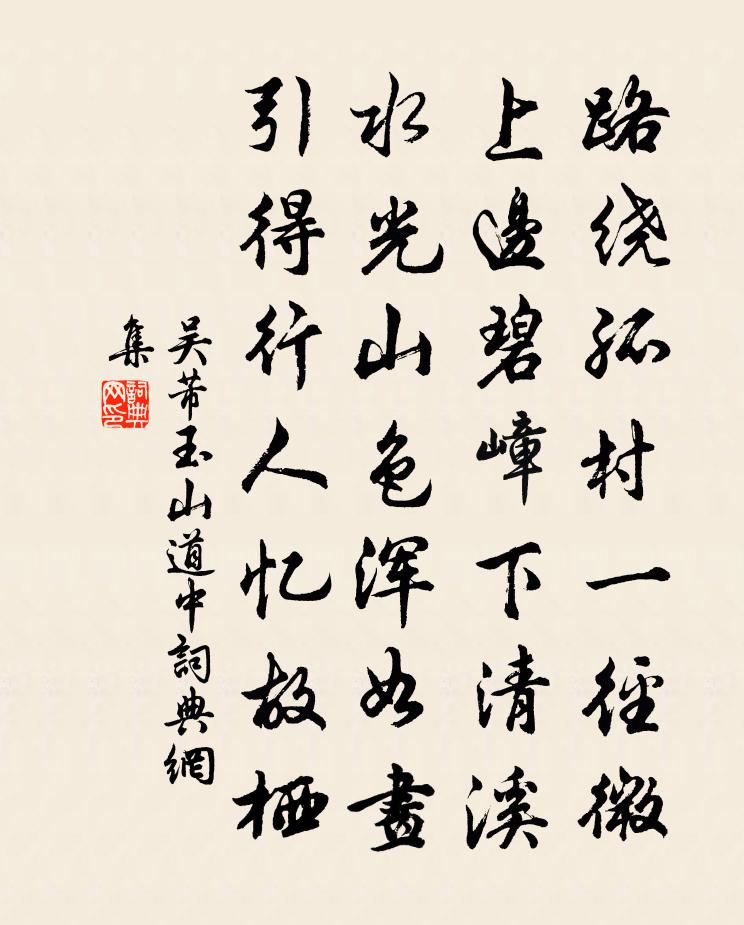 路绕孤村一径微
上邊碧嶂下清溪
水光山色浑如畫
引得行人忆故栖
吴芾玉山道中詞典網
集
詞典網印